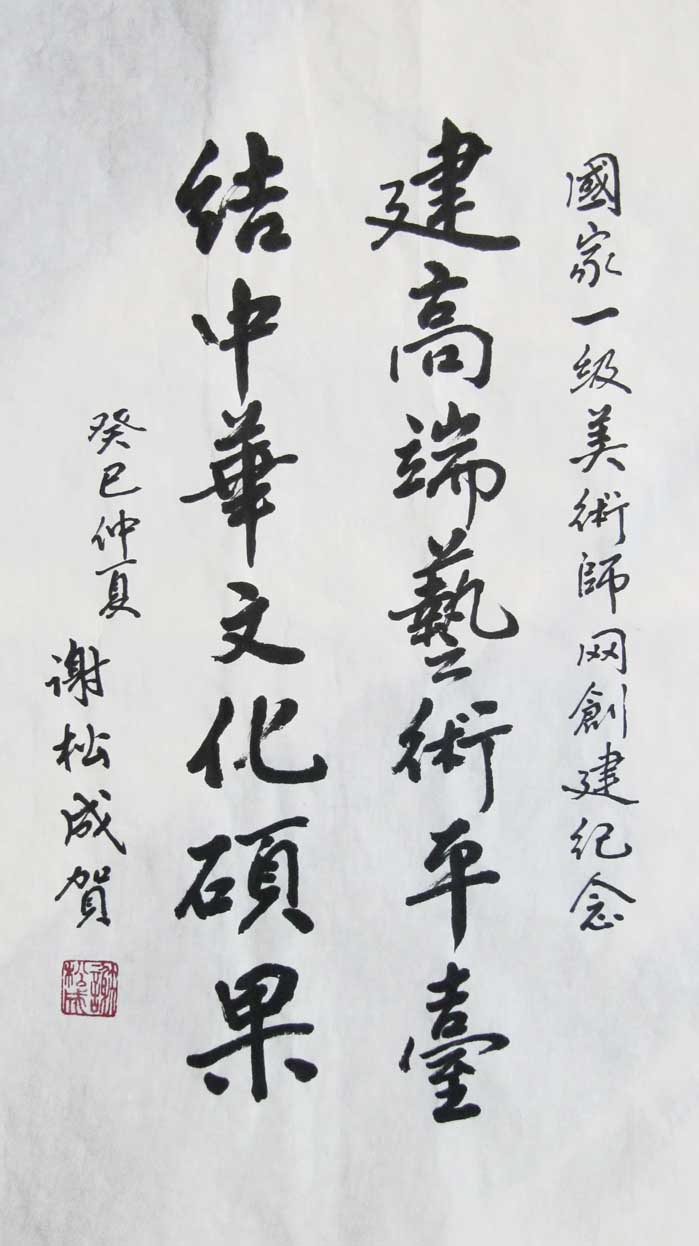 國家一级美術師网創建紀念
建高端藝術平臺
結中華文化碩果
癸巳仲夏
谢松成賀
謝松成